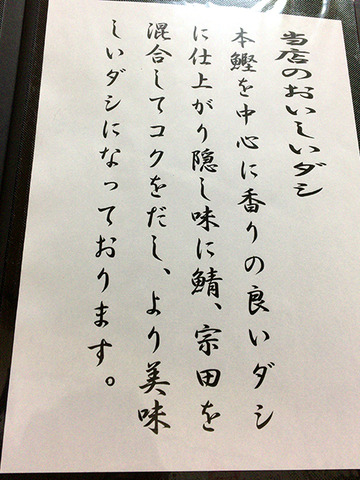 当店のおいしいダシ
本鰹を中心に香りの良いダシ
に仕上がり隠し味に鯖、宗田を
混合してコクをだし、より美味
しいダシになっております。